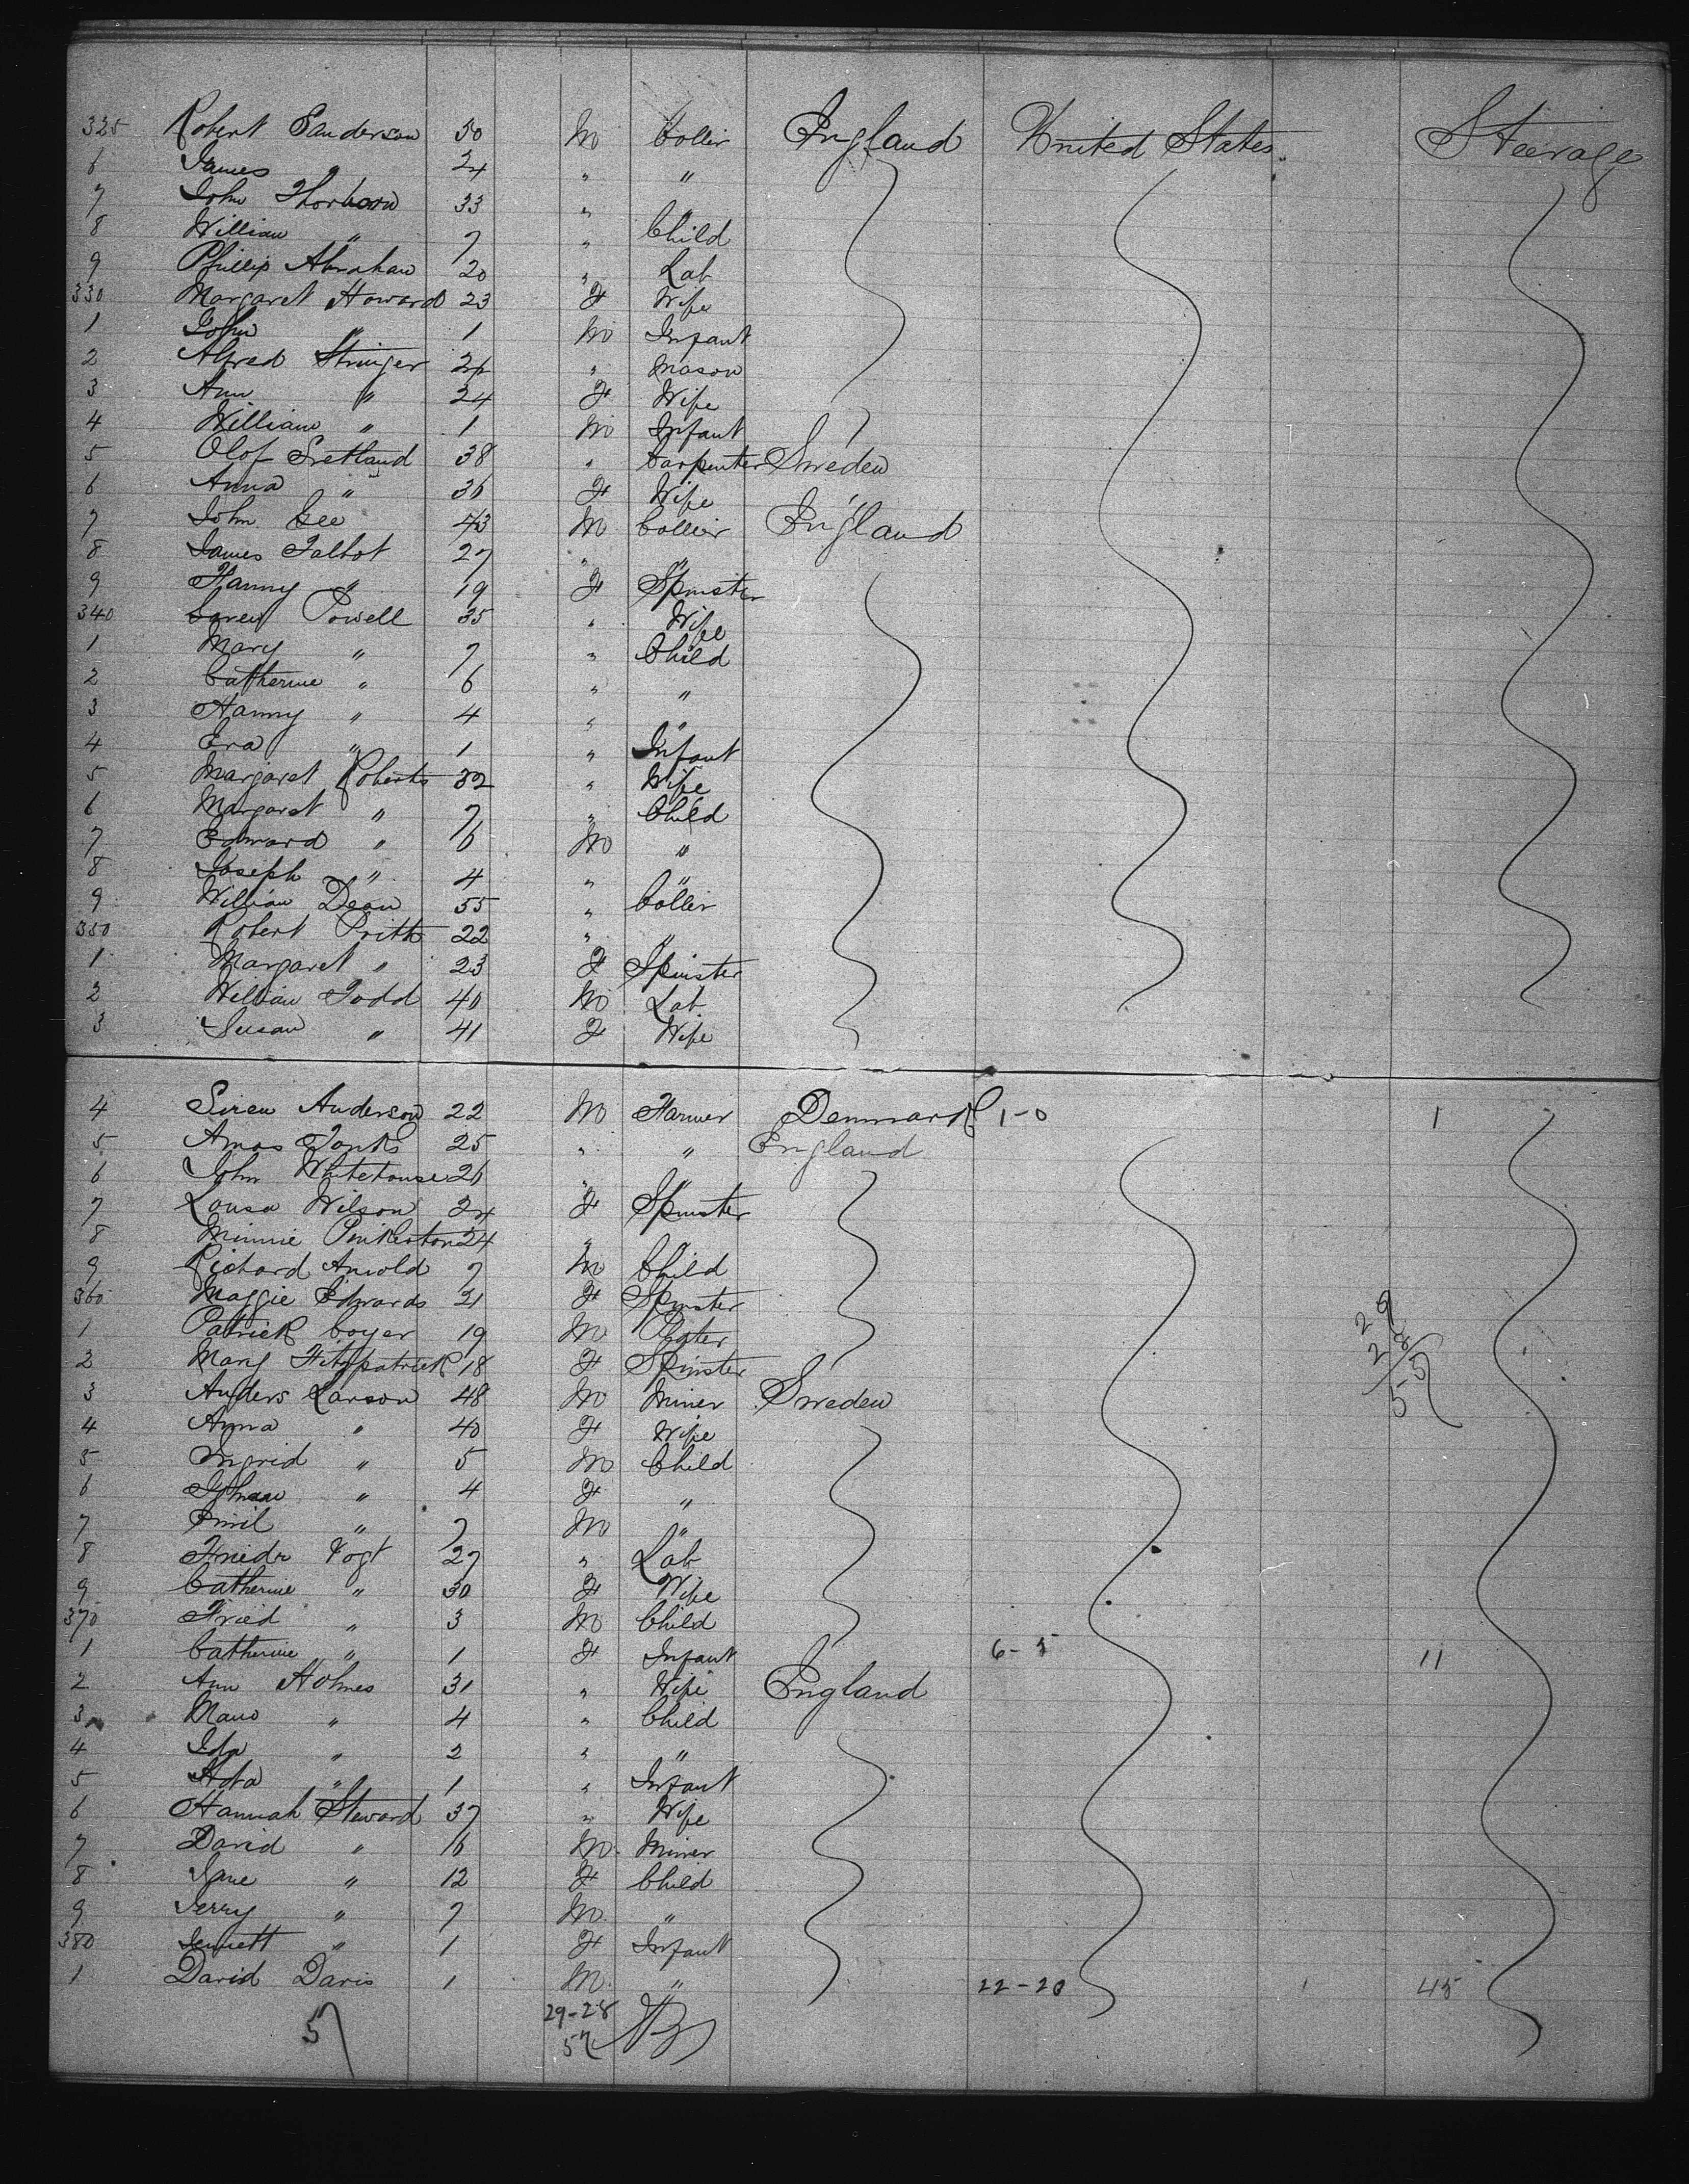 325 Robert Sanderson 50 M Collier England United States Steerage
6 James " 24 " "
7 John Thorborn 33 " "
8 William " 7 " Child
9 Phillip Abraham 20 " Lab
330 Margaret Howard 23 F Wife
1 John " 1 M Infant
2 Alfred Stringer 24 " Mason
3 Ann " 24 F Wife
4 William " 1 M Infant
5 Olof 38 " Carpenter Sweden
6 Anna " 36 F Wife
7 John Gee 43 M Collier England
8 James Talbot 27 " "
9 Fanny " 19 F Spinster
340 Powell 35 " Wife
1 Mary " 7 " Child
2 Catherine " 6 " "
3 Hanny " 4 " "
4 Eva " 1 " Infant
5 Margaret Roberts 32 " Wife
6 Margaret " 7 " Child
7 Edward " 6 M "
8 Joseph " 4 " "
9 William Dean 55 " Collier
350 Robert Pritt 22 " "
1 Margaret " 23 F Spinster
2 William Todd 40 M Lab
3 Susan " 41 F Wife
4 Siren Anderson 22 M Farmer Denmark 1-0 1
5 Amos Tonks 25 " " England
6 John Whitehouse 26 " "
7 Lousa Wilson 24 F Spinster
8 Minnie Pinkerton 24 " "
9 Richard Arnold 7 M Child
360 Maggie Edwards 21 F Spinster
1 Patrick Coyer 19 M 29
2 Mary Fitzpatrick 18 F Spinster 28
3 Anders Larson 48 M Miner Sweden 57
4 Anna " 40 F Wife
5 Ingrid " 5 M Child
6 Johan " 4 F "
7 Emil " 7 M "
8 Friedr Vogt 27 " Lab
9 Catherine " 30 F Wife
370 Fried " 3 M Child
1 Catherine " 1 F Infant 6-5 11
2 Ann Holmes 31 " Wife England
3 Maud " 4 " Child
4 Ida " 2 " "
5 " 1 " Infant
6 Hannah Steward 37 " Wife
7 David " 16 M Miner
8 Jane " 12 F Child
9 Jerry " 7 M "
380 Jennett " 1 F Infant
1 David Davis 1 M " 22-20 1 45
57 29-28
57